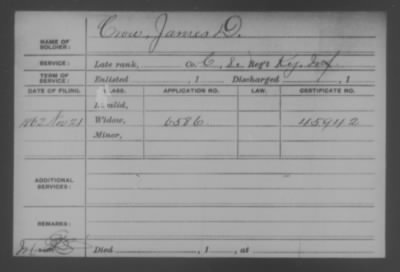 NAME OF SOLDIER: Crow, James D.
SERVICE: Late rank, Co C, Reg't Ky. Inf
TERM OF SERVICE: Enlisted , 1 Discharged , 1
DATE OF FILING. CLASS. APPLICATION NO. LAW. CERTIFICATE NO.
Invalid,
1862 Nov 21 Widow, 6586 45942
Minor,
ADDITIONAL SERVICES:
REMARKS:
Died , 1 , at